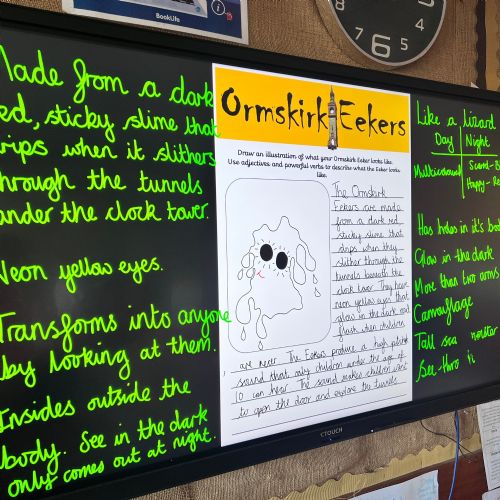 BookLife
Made from a dark
red, sticky slime that
drips when it slithers
through the tunnels
under the clock tower.
Neon yellow eyes.
Transforms into anyone
by looking at them.
Insides outside the
body. See in the dark
only comes out at night.
Ormskirk Eekers
Draw an illustration of what your Ormskirk Eeker looks like.
Use adjectives and powerful verbs to describe what the Eeker looks
like.
The Ormskirk
Eekers are made
from a dark red
sticky slime that
drips when they
slither through the
tunnels beneath the
clock tower. They have
neon yellow eyes that
glow in the dark and
flash when children
are near. The Eekers produce a high pitched
sound that only children under the age of
10 can hear. The sound makes children want
to open the door and explore the tunnels.
Like a lizard
Day Night
Multicoloured Scared - Bl
Happy - Re
Has holes in it's bod
Glow in the dark
More than two arms
Camouflage
Tall sea monster
See thro
CTOUCH
4
5
6
7
8